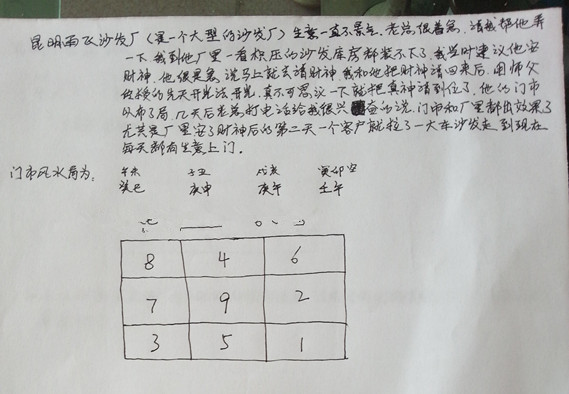 昆明雨飞沙发厂(是一个大型的沙发厂)生意一直不景气,老总很着急,请我帮他弄
一下,我到他厂里一看积压的沙发库房都装不下了,我当时建议他安
财神,他很是急,说马上就去请财神,我和他把财神请回来后,用师父
传授的先天开光法开光,真不可思议一下就把真神请到位了,他的门市
以布了局,几天后老总打电话给我很兴奋的说,门市和厂里都出效果了
尤其是厂里安了财神后的第二天一个客户就拉了一大车沙发走,到现在
每天都有生意上门。
门市风水局为: 午未 子丑 戌亥 寅卯空
癸巳 庚申 庚午 壬午
8 4 6
7 9 2
3 5 1